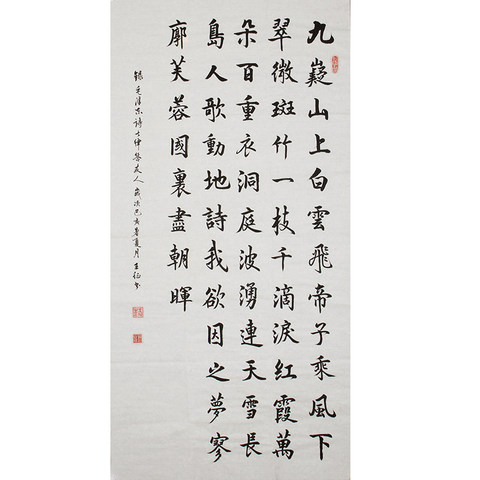 九嶷山上白雲飛帝子乘風下
翠微斑竹一枝千滴淚紅霞萬
朵百重衣洞庭波湧連天雪長
島人歌動地詩我欲因之夢寥
廓芙蓉國裏盡朝暉
錄毛澤东詩七律答友人 歲次己亥夏月